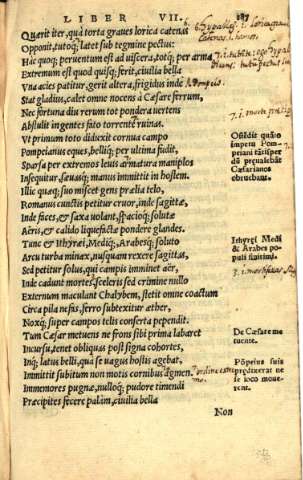 LIBER VII. 187
Quærit iter, qua torta graues lorica catenas
Opponit, tutoq; latet sub tegmine pectus:
Hac quoq; peruentum est ad uiscera, totq; per arma
Extremum est quod quisq; ferit, ciuilia bella
Vna acies patitur, gerit altera, frigidus inde
Stat gladius, calet omne nocens à Cæsare ferrum,
Nec fortuna diu rerum tot pondera uertens
Abstulit ingentes fato torrente ruinas.
Vt primum toto diduxit cornua campo
Pompeianus eques, belliq; per ultima fudit,
Sparsa per extremos leuis armatura maniplos
Insequitur, sæuasq; manus immittit in hostem.
Illic quæq; suo miscet gens prælia telo,
Romanus cunctis petitur cruor, inde sagittæ,
Inde faces, & saxa uolant, spacioq; solutæ
Aëris, & calido liquefactæ pondere glandes.
Tunc & Ithyræi, Mediq;, Arabesq; soluto
Arcu turba minax, nusquam rexere sagittas,
Sed petitur solus, qui campis imminet aër,
Inde cadunt mortes, sceleris sed crimine nullo
Externum maculant Chalybem, stetit omne coactum
Circa pila nefas, ferro subtexitur æther,
Noxq; super campos telis conserta pependit.
Tum Cæsar metuens ne frons sibi prima labaret
Incursu, tenet obliquas post signa cohortes,
Inq; latus belli, qua se uagus hostis agebat,
Immittit subitum non motis cornibus agmen.
Immemores pugnæ, nulloq; pudore timendi
Præcipites fecere palàm, ciuilia bella
Non
Ostēdit quāto
impetu Pom-
peiani
Cæsarianos
obruebant.
Ithyræi Medi
& Arabes po
puli
De Cæsare me
tuente.
Pōpeius suis
prædixerat ne
se loco moue
rent.